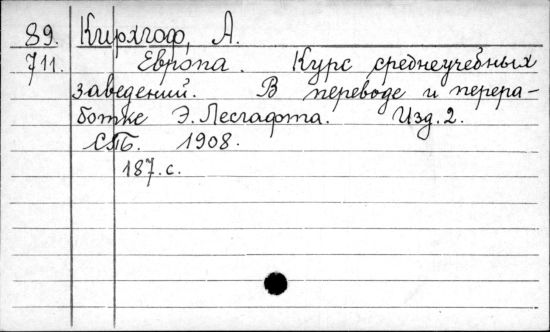 89. Кирхгоф, А.
711. Европа. Курс среднеучебных
заведений. В переводе и перера-
ботке Э. Лесгафта. Изд. 2.
СПБ. 1908.
187. с.